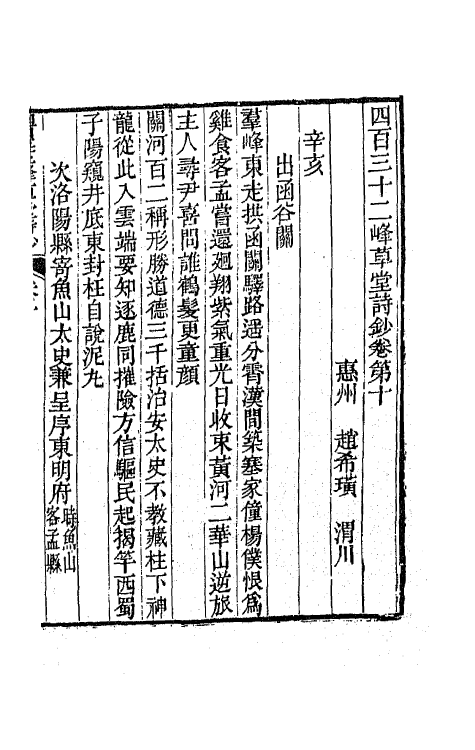 四百三十二峰草堂詩鈔卷第十
惠州 趙希璜 渭川
辛亥
出函谷關
羣峰東走拱函關驛路遥分霄漢間築塞家僮楊僕恨爲
雞食客孟嘗還廻翔紫氣重光日收束黃河二華山逆旅
主人尋尹喜問誰鶴髮更童顔
關河百二稱形勝道德三千括治安太史不教藏柱下神
龍從此入雲端要知逐鹿同摧險方信驅民起揭竿西蜀
子陽窺井底東封枉自說泥丸
次洛陽縣寄魚山太史兼呈序東明府
時魚山
客孟縣